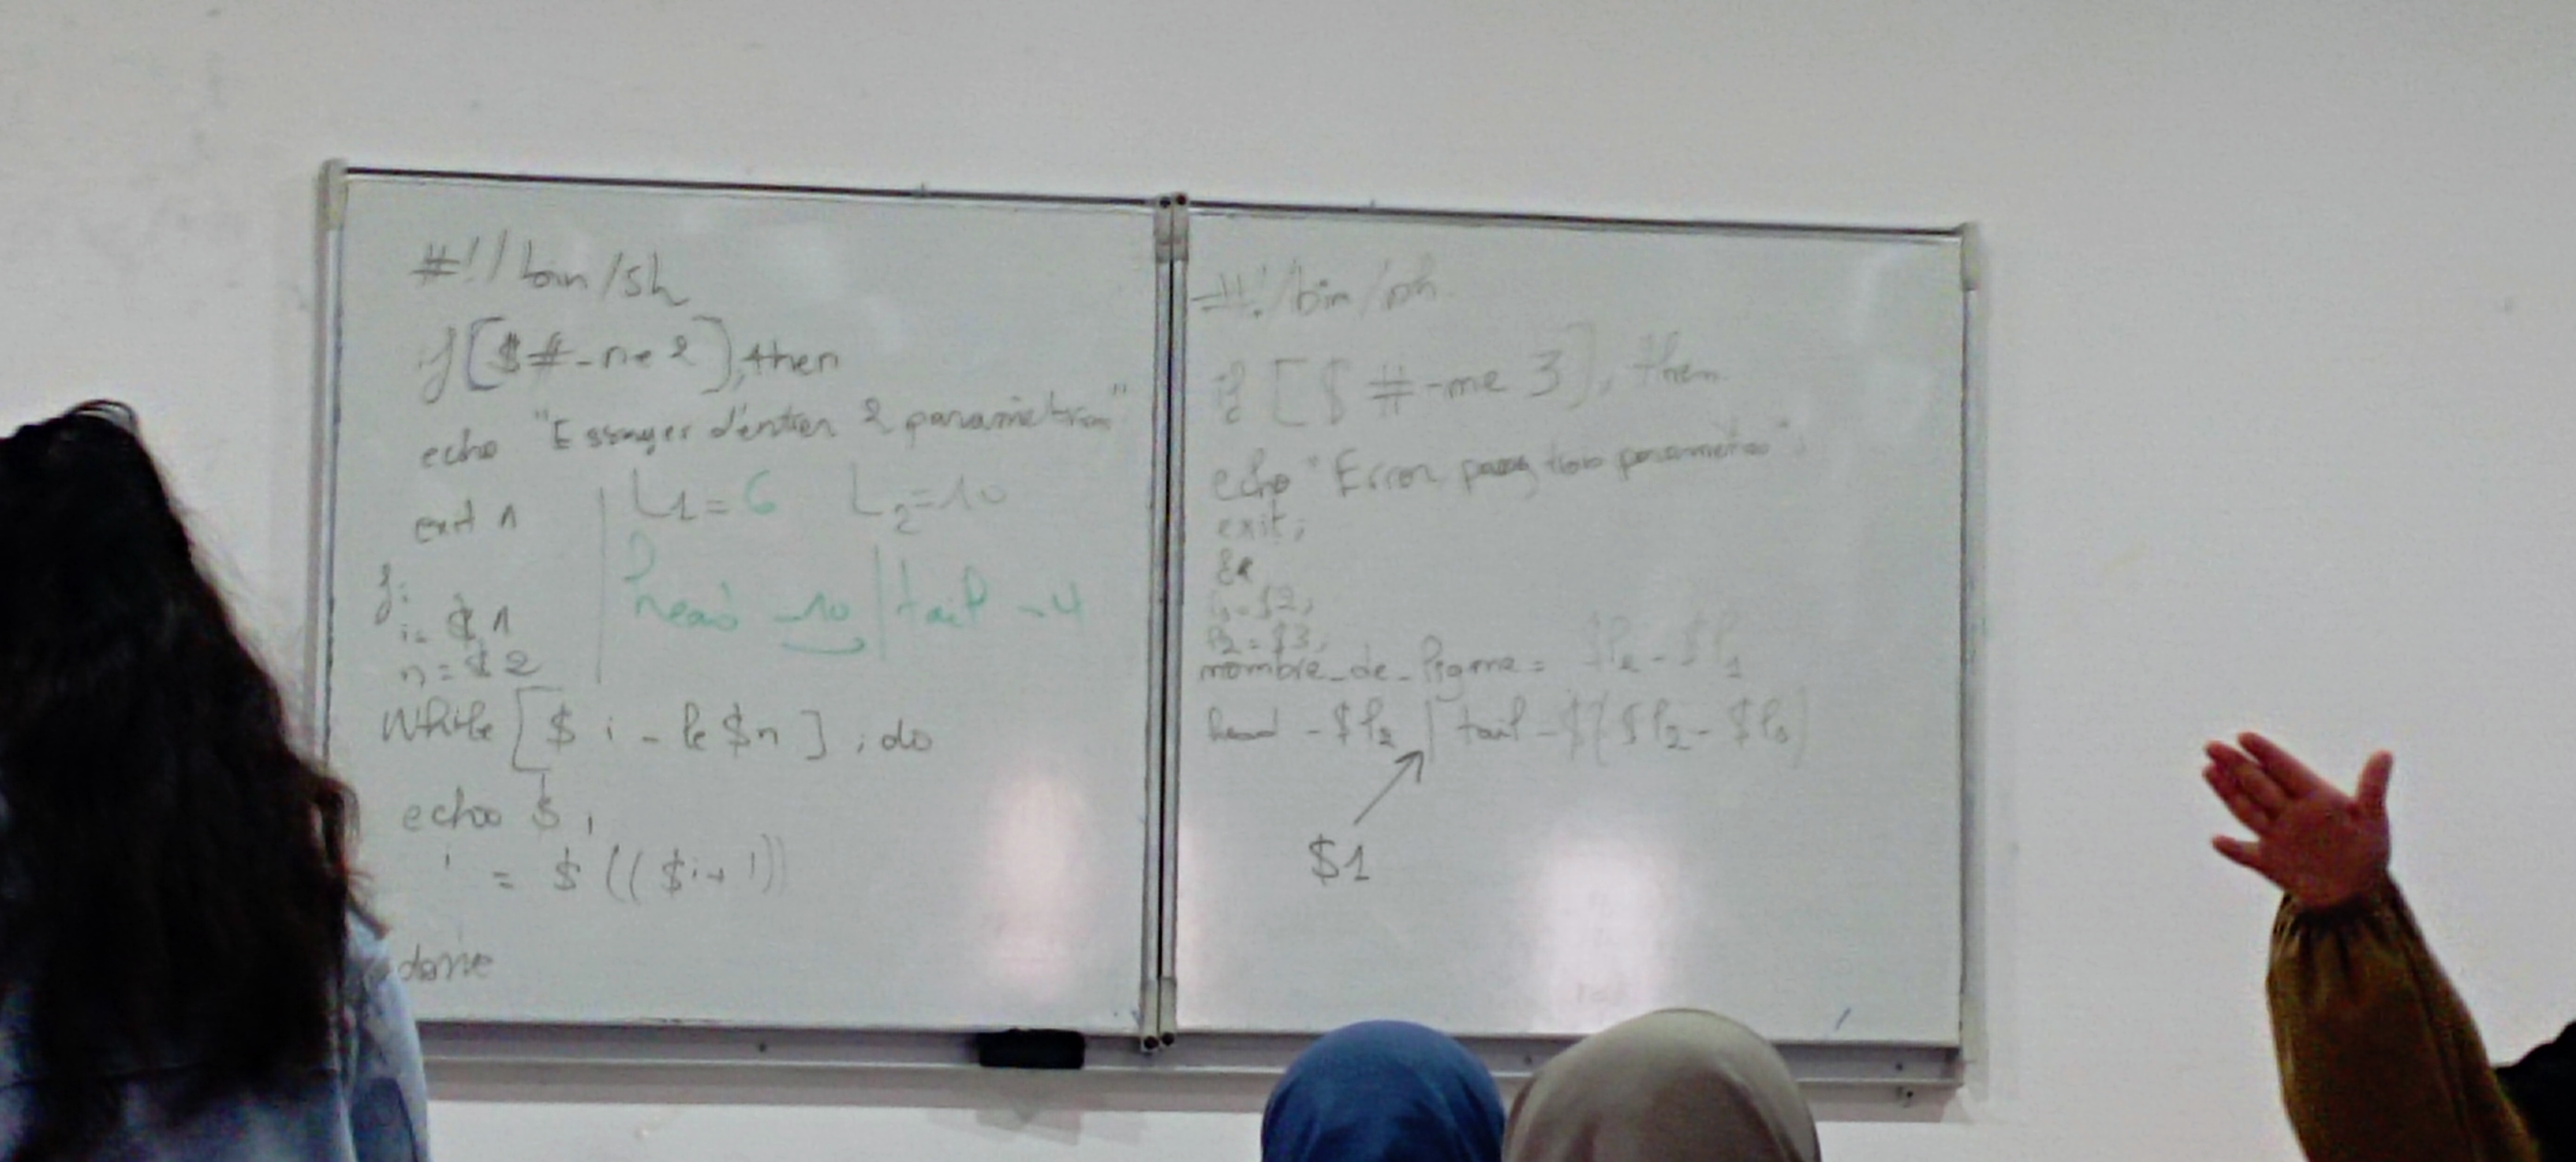 #!/bin/sh
if [$#-ne 2];then
echo "Essayer d'entrer 2 parametres"
exit 1
fi
i=$1
n=$2
While [$i -le $n] ; do
echo $i
i = $(( $i+1))
done
L1=6 L2=10
head -10 | tail -4
#!/bin/sh
if [$ #-ne 3], then
echo "Error, passez trois parametres"
exit;
l1=$2;
l2=$3;
nombre_de_ligne = $l2-$l1
head -$l2 | tail -$($l2-$l1)
$1